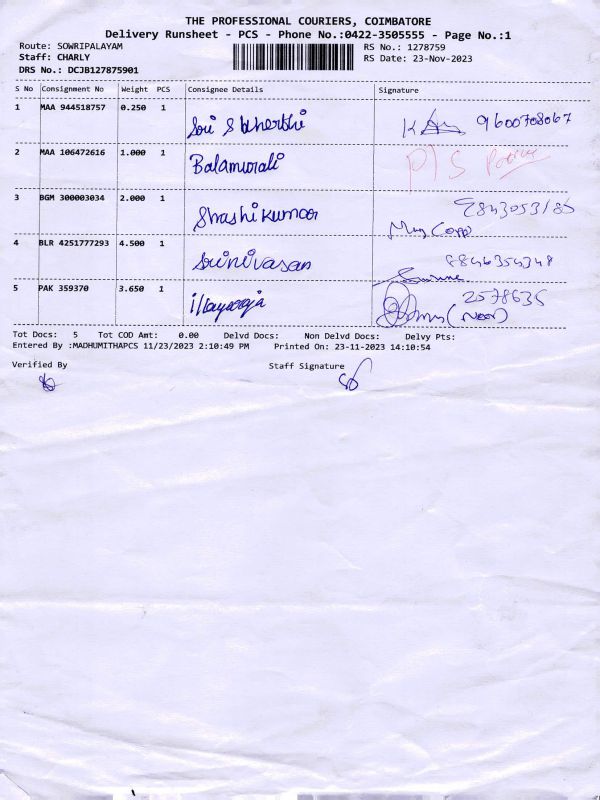 THE PROFESSIONAL COURIERS, COIMBATORE
Delivery Runsheet - PCS - Phone No.:0422-3505555 - Page No.:1
Route: SOWRIPALAYAM RS No.: 1278759
Staff: CHARLY RS Date: 23-Nov-2023
DRS No.: DCJB127875901
S No Consignment No Weight PCS Consignee Details Signature
1 MAA 944518757 0.250 1 9600708067
2 MAA 106472616 1.000 1 Balamurali P/S
3 BGM 300003034 2.000 1 Shashi Kumar
4 BLR 4251777293 4.500 1 Srinivasan 8846354348
5 PAK 359370 3.650 1 illayaraja 2578635
Tot Docs: 5 Tot COD Amt: 0.00 Delvd Docs: Non Delvd Docs: Delvy Pts:
Entered By :MADHUMITHAPCS 11/23/2023 2:10:49 PM Printed On: 23-11-2023 14:10:54
Verified By Staff Signature